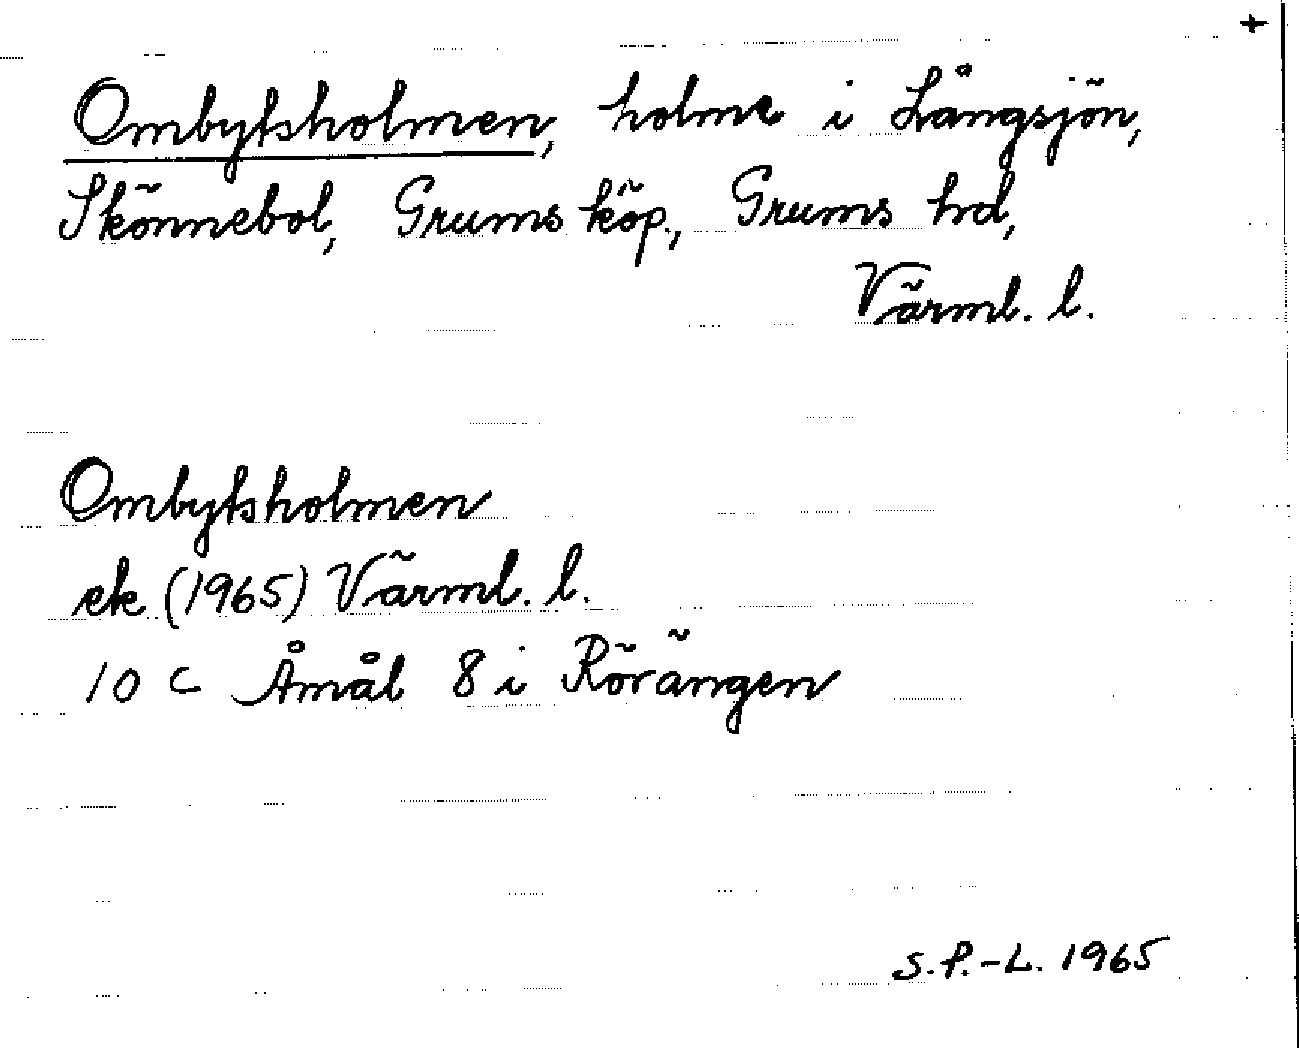 +
Ombytsholmen, holme i Långsjön,
Skönnebol, Grums köp., Grums hd,
Värml. l.
Ombytsholmen
ek (1965) Värml. l.
10 c Åmål 8 i Rörängen
S.P.-L. 1965